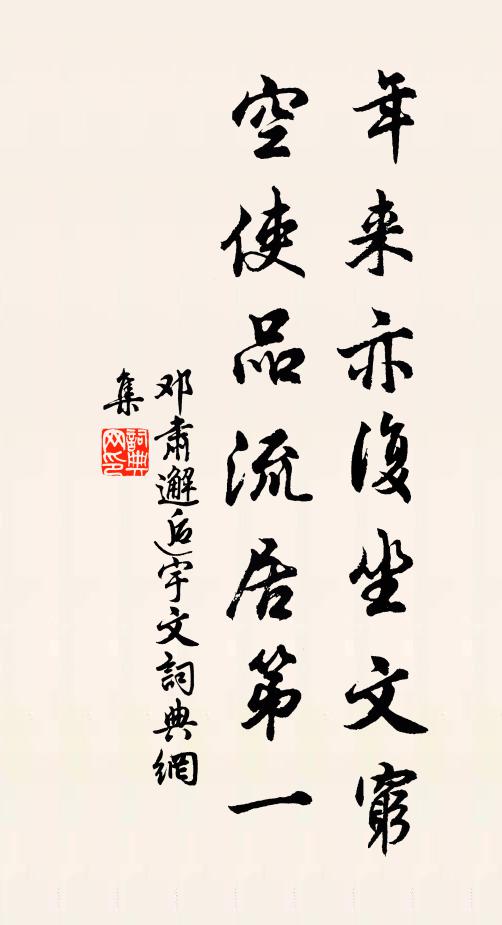 年来亦復坐文窮
空使品流居第一
邓肅邂逅宇文詞典網
集
詞典网印